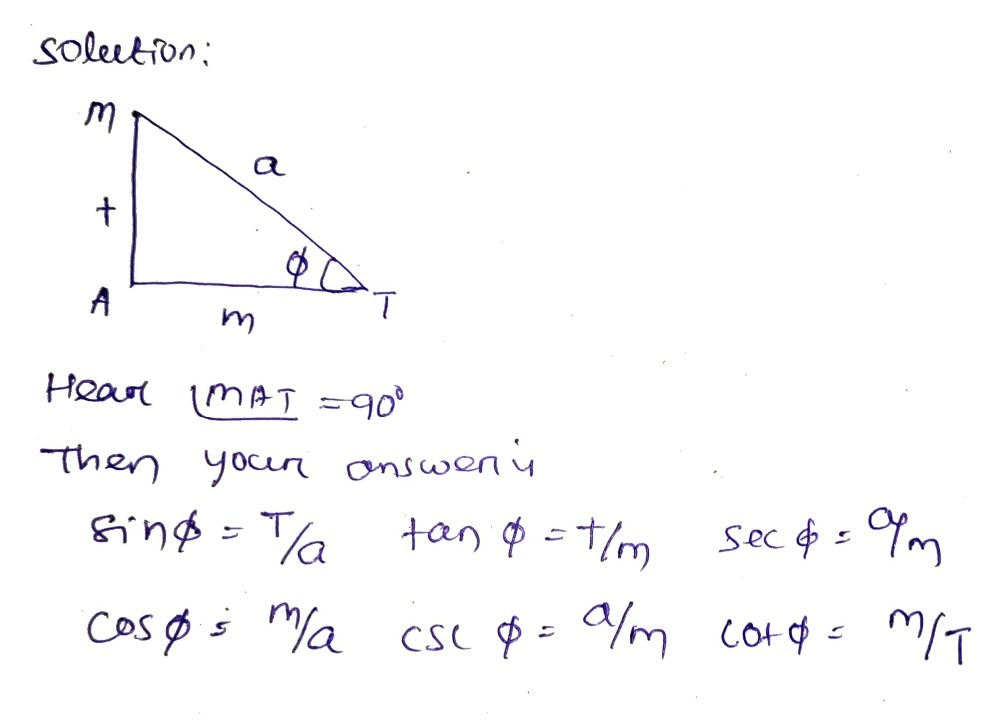 Solution:
M
a
t
ϕ
A
T
m
Hear ∠MAT = 90°
Then your answer is
sinϕ = T/a tan ϕ = t/m sec ϕ = a/m
cosϕ = m/a csc ϕ = a/m cot ϕ = m/T